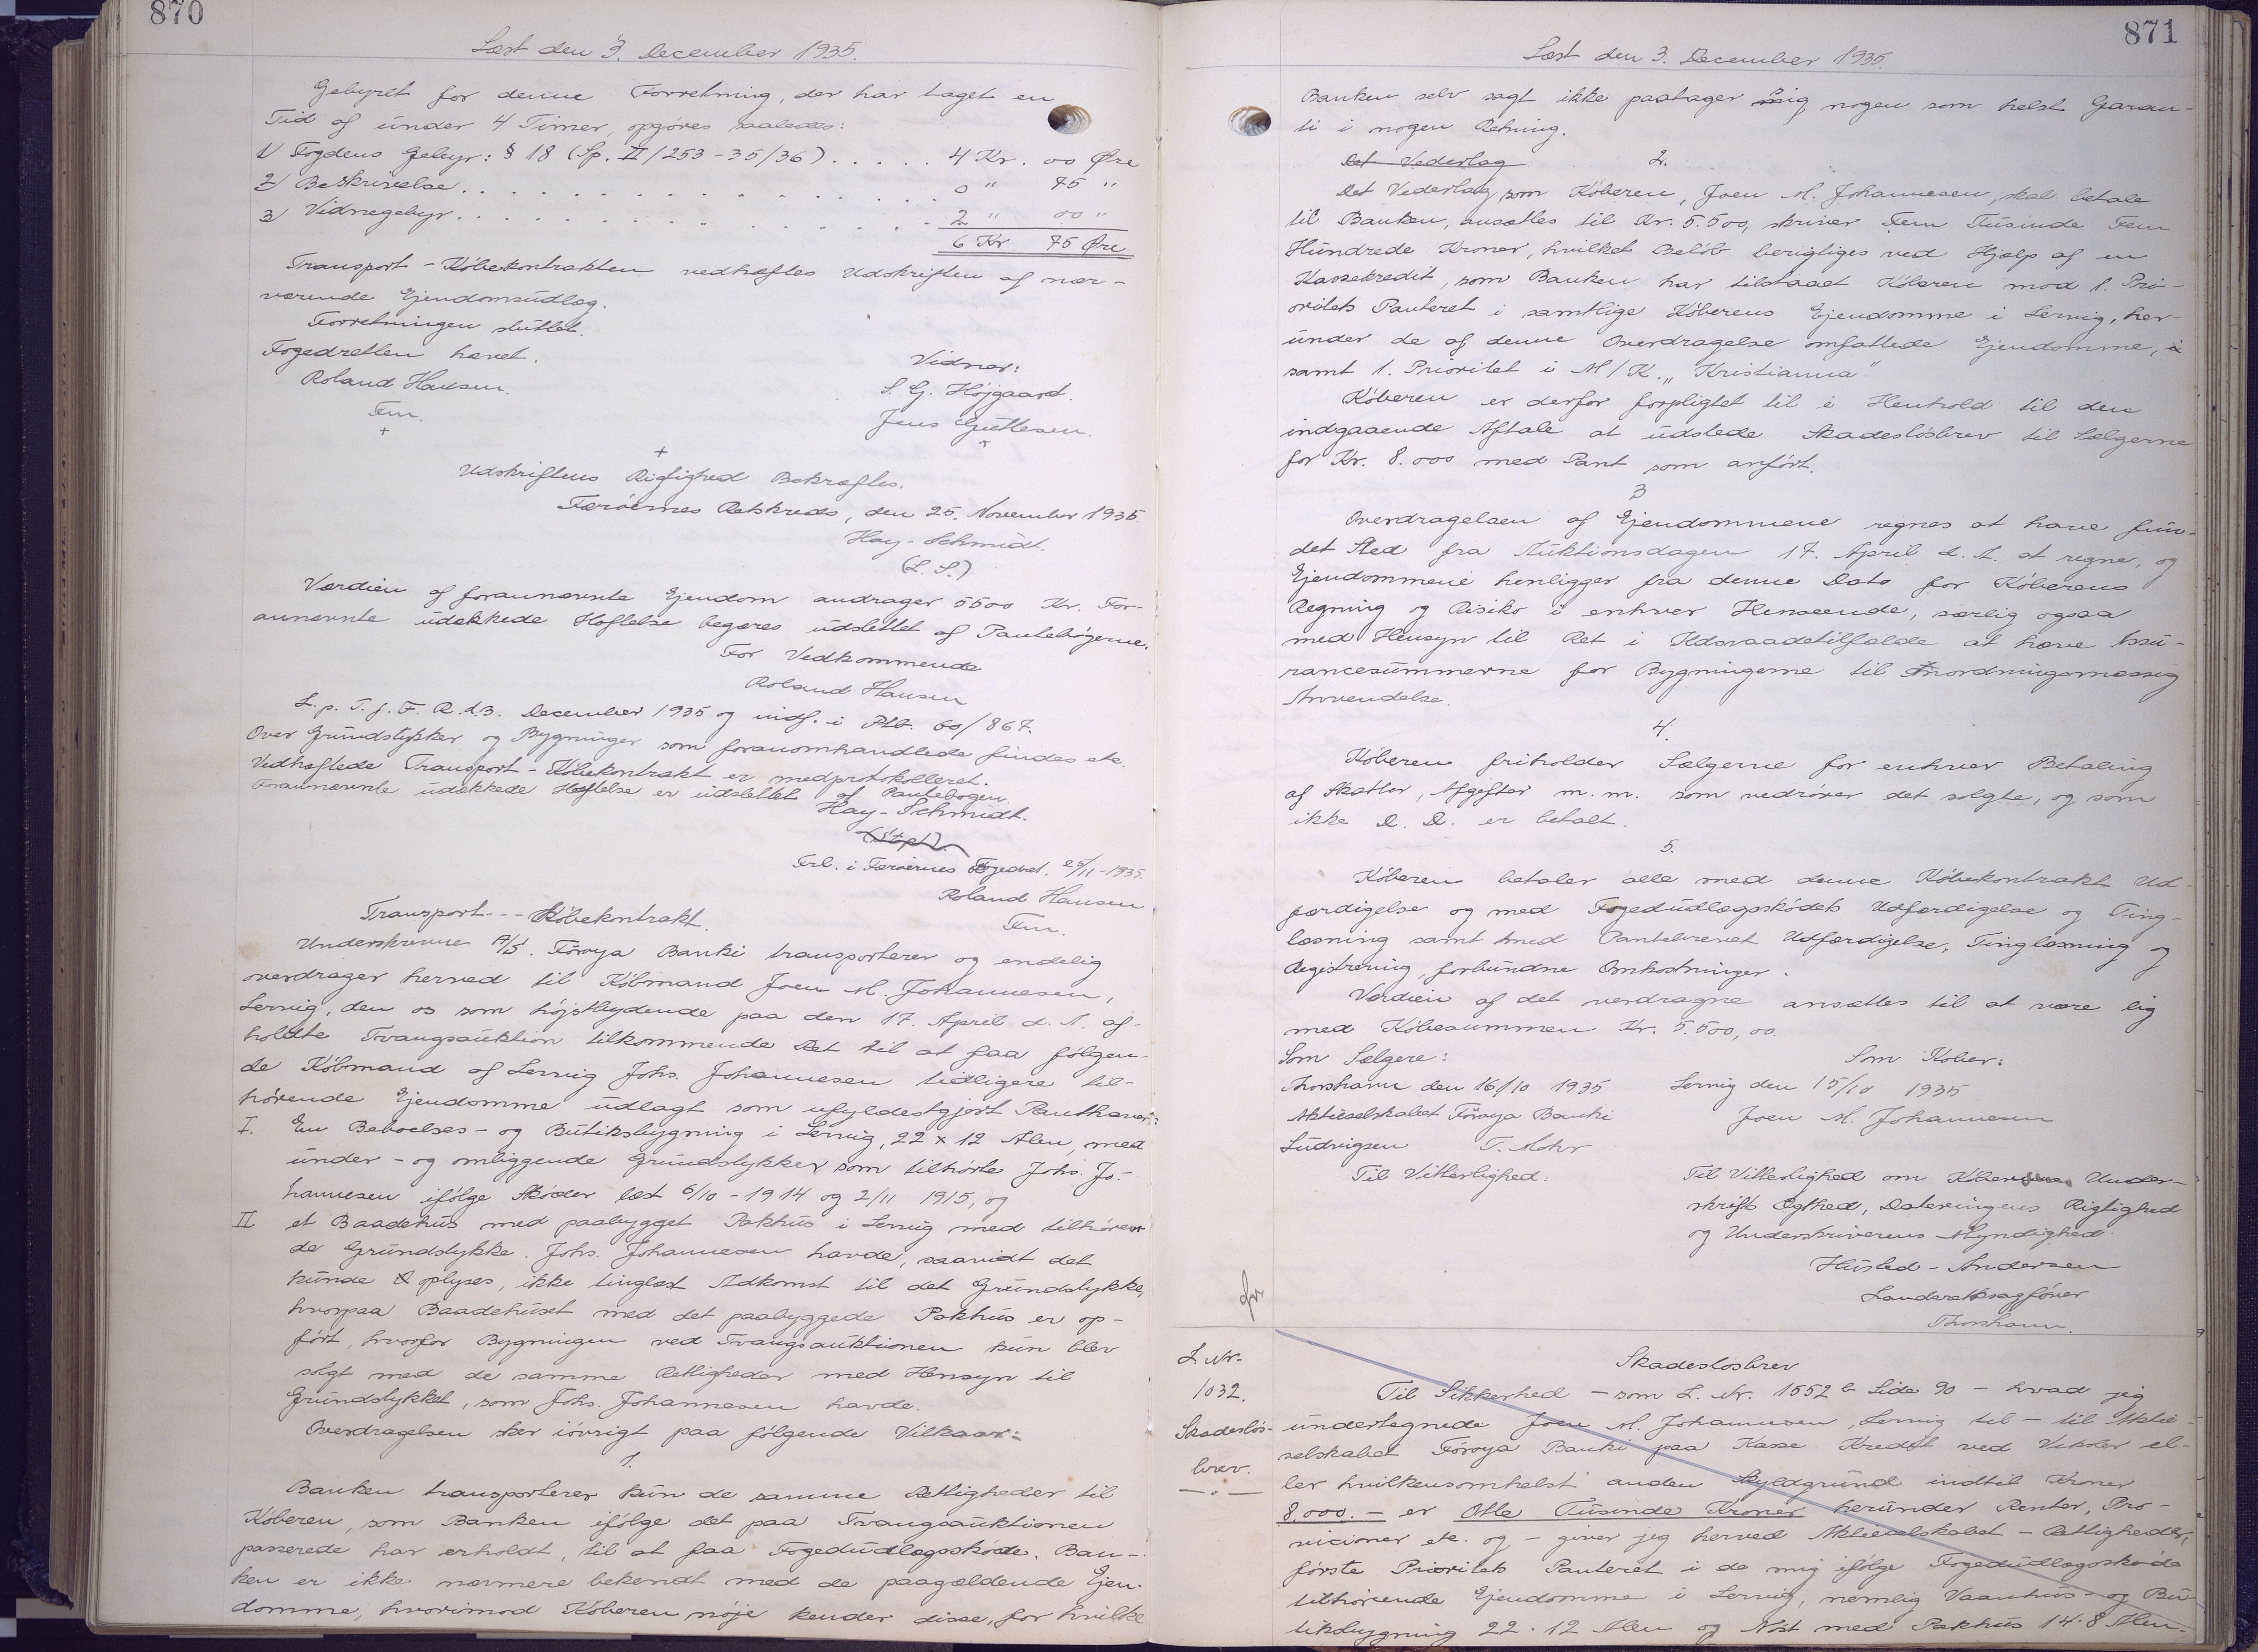 870
Læst den 3. December 1935.
Gebyret for denne Forretning, der har taget en
Tid af under 4 Timer, opgøres saaledes:
1) Fogdens Gebyr: § 18 (Sp. II/253-35/36) . . . . . 4 Kr. 00 Øre
2) Beskrivelse . . . . . . . . . . . 0 " 75 "
3) Vidnegebyr . . . . . . . . . . . 2 " 00 "
6 Kr 75 Øre
Transport-Købekontrakten vedhæftes Udskriften af nær-
værende Ejendomsudlæg.
Forretningen sluttet.
Fogedretten hævet.
Roland Hansen.
Fm.
Vidner:
S. G. Højgaard.
Jens Guttesen.
Udskriftens Rigtighed Bekræftes.
Færøernes Retskreds, den 25. November 1935
Hay-Schmidt.
(L. S.)
Værdien af forannævnte Ejendom andrager 5500 Kr. For-
annævnte udækkede Hæftelse begæres udslettet af Pantebøgerne.
For Vedkommende
Roland Hansen
L. p. T. f. F. R. d. 3. December 1935 og indf. i Ptb. 60/867.
Over Grundstykker og Bygninger som foranomhandlede findes etc.
Vedhæftede Transport-Købekontrakt er medprotokolleret.
Forannævnte udækkede Hæftelse er udslettet af Pantebogen.
Hay-Schmidt.
(Stpl)
Frb. i Færøernes Fogedret. 25/11-1935.
Roland Hansen
Fm.
Transport-- Købekontrakt.
Underskrevne A/S. Føroya Banki transporterer og endelig
overdrager herved til Købmand Joen M. Johannesen,
Lervig, den os som højstbydende paa den 17. April d. A. af-
holdte Tvangsauktion tilkommende Ret til at faa følgen-
de Købmand af Lervig Johs. Johannesen tidligere til-
hørende Ejendomme udlagt som ufyldestgjort Panthaver:
I. En Beboelses- og Butiksbygning i Lervig, 22 x 12 Alen, med
under- og omliggende Grundstykker som tilhørte Johs. Jo-
hannesen ifølge Skøder læst 6/10-1914 og 2/11 1915, og
II. et Baadehus med paabygget Pakhus i Lervig med tilhøren-
de Grundstykke. Johs. Johannesen havde, saavidt det
kunde oplyses, ikke tinglæst Adkomst til det Grundstykke,
hvorpaa Baadehuset med det paabyggede Pakhus er op-
ført, hvorfor Bygningen ved Tvangsauktionen kun blev
solgt med de samme Rettigheder med Hensyn til
Grundstykket, som Johs. Johannesen havde.
Overdragelsen sker iøvrigt paa følgende Vilkaar:
1.
Banken transporterer kun de samme Rettigheder til
Køberen, som Banken ifølge det paa Tvangsauktionen
passerede har erholdt, til at faa Fogedudlægsskøde. Ban-
ken er ikke nærmere bekendt med de paagældende Ejen-
domme, hvorimod Køberen nøje kender disse, for hvilke
871
Læst den 3. December 1935.
Banken selv sagt ikke paatager sig nogen som helst Garan-
ti i nogen Retning.
Det Vederlag 2.
Det Vederlag, som Køberen, Joen M. Johannesen, skal betale
til Banken, ansættes til Kr. 5.500, skriver Fem Tusinde Fem
Hundrede Kroner, hvilket Beløb berigtiges ved Hjælp af en
Kassekredit, som Banken har tilstaaet Køberen mod 1. Pri-
oritets Panteret i samtlige Køberens Ejendomme i Lervig, her-
under de af denne Overdragelse omfattede Ejendomme,
samt 1. Prioritet i M/K. "Kristianna".
Køberen er derfor forpligtet til i Henhold til den
indgaaende Aftale at udstede Skadesløsbrev til Sælgerne
for Kr. 8.000 med Pant som anført.
3
Overdragelsen af Ejendommene regnes at have fun-
det Sted fra Auktionsdagen 17. April d. A. at regne, og
Ejendommene henligger fra denne Dato for Køberens
Regning og Risiko i enhver Henseende, særlig ogsaa
med Hensyn til Ret i Ildsvaadetilfælde at hæve Assu-
rancesummerne for Bygningerne til anordningsmæssig
Anvendelse.
4.
Køberen friholder Sælgerne for enhver Betaling
af Skatter, Afgifter m. m. som vedrører det solgte, og som
ikke D. D. er betalt.
5.
Køberen betaler alle med denne Købekontrakt Ud-
færdigelse og med Fogedudlægsskødets Udfærdigelse og Ting-
læsning samt med Pantebrevet Udfærdigelse, Tinglæsning og
Registrering, forbundne Omkostninger.
Værdien af det verdragne ansættes til at være lig
med Købesummen Kr. 5.500,00
Som Sælgere:
Thorshavn den 16/10 1935
Aktieselskabet Føroya Banki
Ludvigsen T. Mohr
Til Vitterlighed:
Som Køber:
Lervig den 15/10 1935
Joen M. Johannesen
Til Vitterlighed om Køberens Under-
skrifts Ægthed, Dateringens Rigtighed
og Underskriverens Myndighed.
Husted-Andersen
Landsretssagfører
Thorshavn.
L. Nr.
1032.
Skadesløs-
brev.
Skadesløsbrev
Til Sikkerhed - som L. Nr. 1552 b Side 90 - hvad jeg
undertegnede Joen M. Johannesen, Lervig til - til Aktie-
selskabet Føroya Banki paa Kasse Kredit ved Veksler el-
ler hvilkensomhelst anden Skyldgrund indtil Kroner
8.000.- er Otte Tusinde Kroner herunder Renter, Pro-
visioner etc. og - giver jeg herved Aktieselskabet - Rettigheder,
første Prioritets Panteret i de mig ifølge Fogedudlægsskøde
tilhørende Ejendomme i Lervig, nemlig Vaanhus- og Bu-
tiksbygning 22 · 12 Alen og Nøst med Pakhus 14 · 8 Alen-